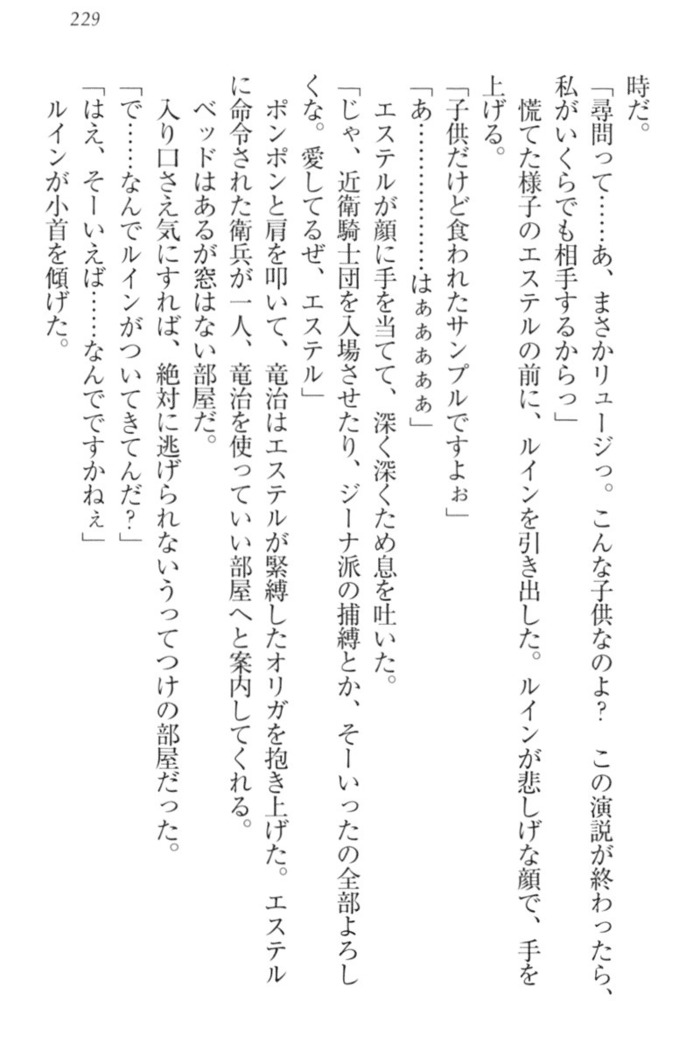 229
時だ。
「尋問って……あ、まさかリュージっ。こんな子供なのよ？　この演説が終わったら、
私がいくらでも相手するからっ」
　慌てた様子のエステルの前に、ルインを引き出した。ルインが悲しげな顔で、手を
上げる。
「子供だけど食われたサンプルですよぉ」
「あ………………はぁぁぁぁぁ」
　エステルが顔に手を当てて、深く深くため息を吐いた。
「じゃ、近衛騎士団を入場させたり、ジーナ派の捕縛とか、そーいったの全部よろし
くな。愛してるぜ、エステル」
　ポンポンと肩を叩いて、竜治はエステルが緊縛したオリガを抱き上げた。エステル
に命令された衛兵が一人、竜治を使っていい部屋へと案内してくれる。
　ベッドはあるが窓はない部屋だ。
　入り口さえ気にすれば、絶対に逃げられないうってつけの部屋だった。
「で……なんでルインがついてきてんだ？」
「はえ、そーいえば……なんでですかねぇ」
　ルインが小首を傾げた。